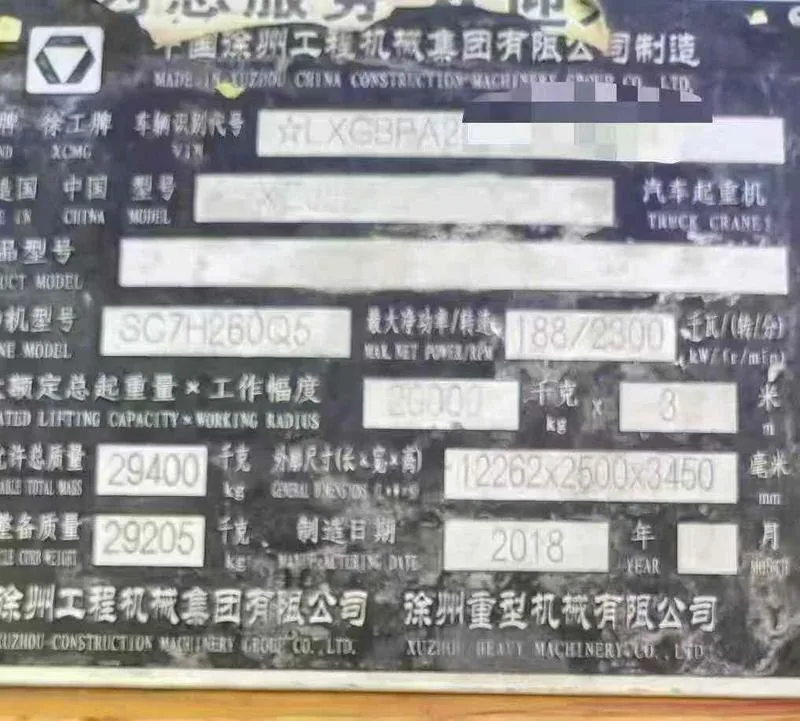 中国徐州工程机械集团有限公司制造
MADE IN XUZHOU CHINA CONSTRUCTION MACHINERY GROUP CO., LTD.
牌 徐工牌 车辆识别代号 ☆LXGBPA2
ND XCMG VIN
造国 中国 型号 汽车起重机
IN CHINA MODEL TRUCK CRANE
品型号
UCT MODEL
机型号 SC7H260Q5 最大净功率/转速 188/2300 千瓦/(转/分)
NE MODEL MAX. NET POWER/RPM kW/(r/min)
额定总起重量×工作幅度 20000 千克 x 3 米
ATED LIFTING CAPACITY×WORKING RADIUS kg m
允许总质量 29400 千克 外形尺寸(长x宽x高) 12262x2500x3450 毫米
ABLE TOTAL MASS kg GENERAL DIMENSIONS (L×W×H) mm
整备质量 29205 千克 制造日期 2018 年 月
CLE CURB WEIGHT kg MANUFACTURING DATE YEAR MONTH
徐州工程机械集团有限公司 徐州重型机械有限公司
XUZHOU CONSTRUCTION MACHINERY GROUP CO., LTD. XUZHOU HEAVY MACHINERY CO., LTD